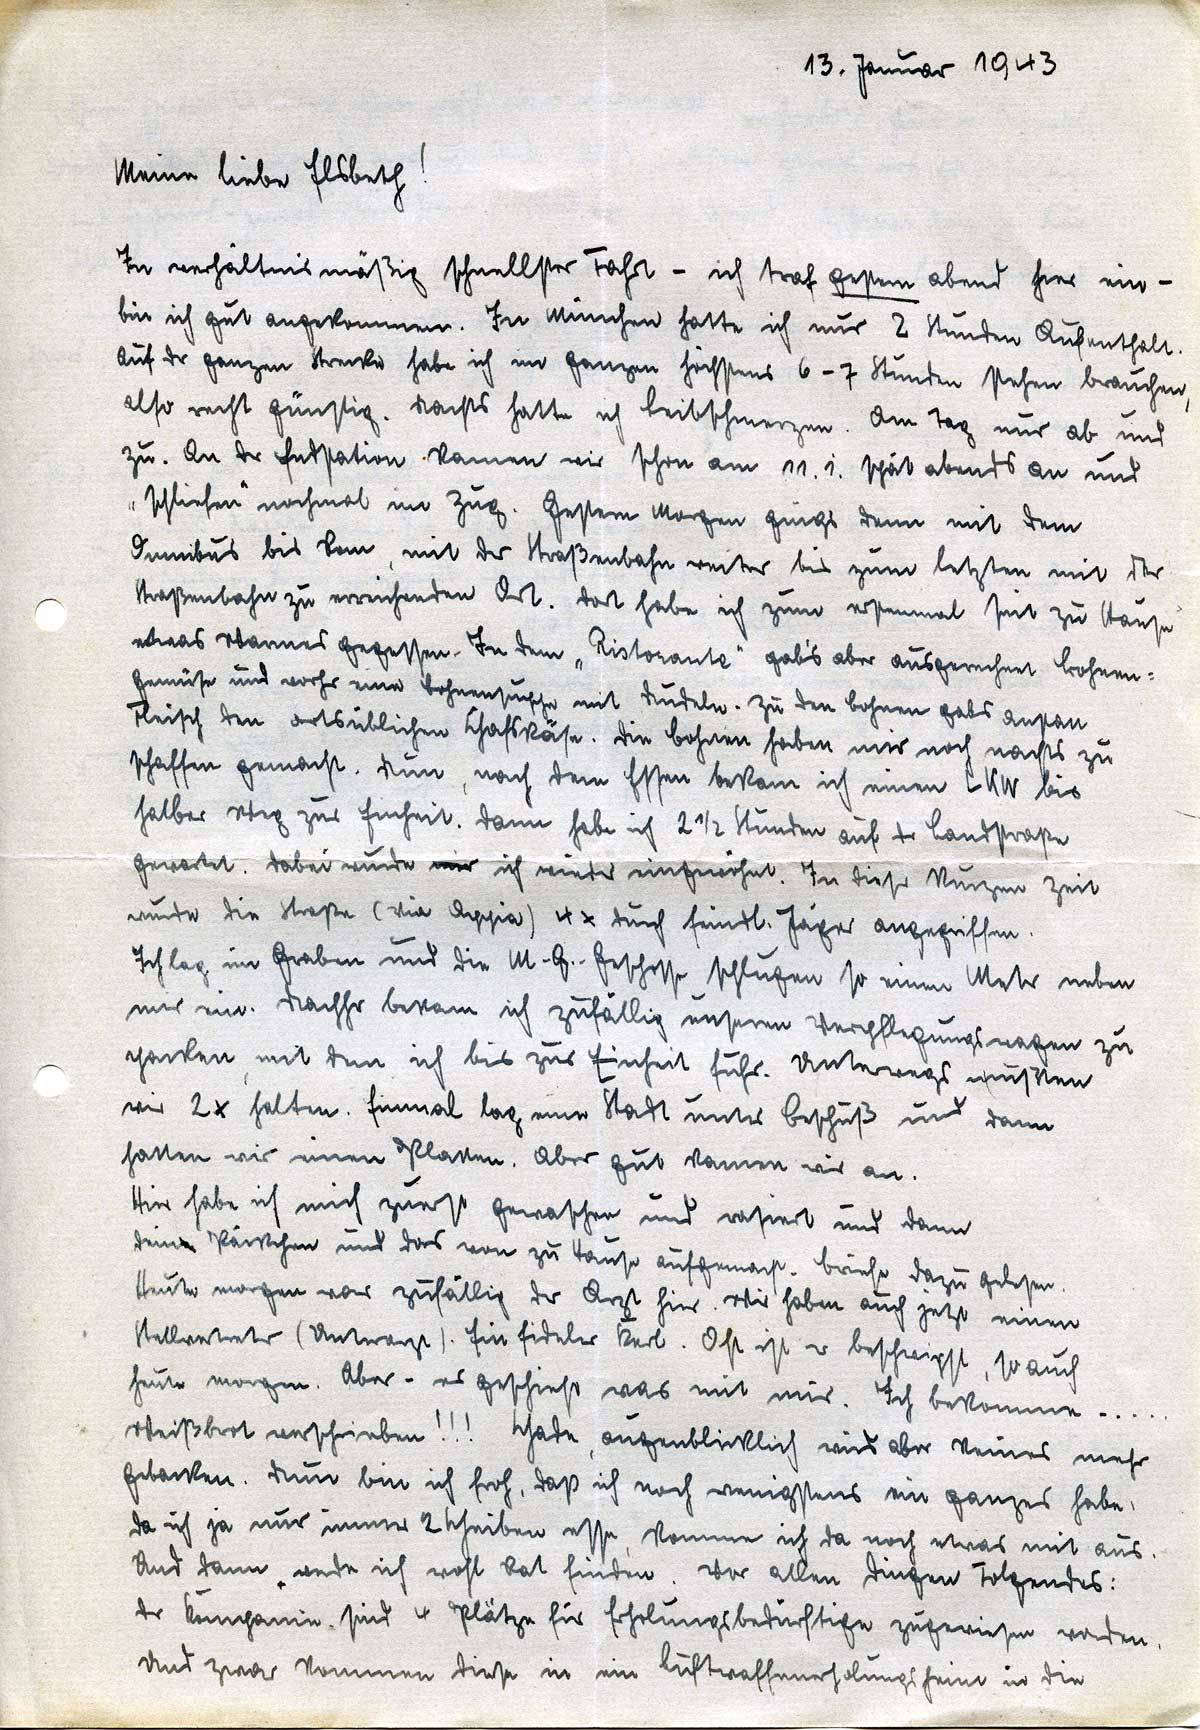 13. Januar 1943
Meine liebe Elsbeth!
In verhältnismäßig schnellster Fahrt – ich traf gestern abend hier ein –
bin ich gut angekommen. In München hatte ich nur 2 Stunden Aufenthalt.
Auf der ganzen Strecke habe ich im ganzen höchstens 6–7 Stunden stehen brauchen,
also recht günstig. Nachts hatte ich Leibschmerzen. Am Tag nur ab und
zu. An der Endstation kamen wir schon am 11.1. spät abends an und
"schliefen" nochmal im Zug. Gestern Morgen gings dann mit dem
Omnibus bis Rom, mit der Straßenbahn weiter bis zum letzten mit der
Straßenbahn zu erreichenden Ort. Dort habe ich zum erstenmal seit zu Hause
etwas Warmes gegessen. In dem "Ristorante" gab's aber ausgerechnet Bohnen=
gemüse und vorher eine Bohnensuppe mit Nudeln. Zu den Bohnen gabs anstatt
Fleisch den ortsüblichen Schafskäse. Die Bohnen haben mir noch nachts zu
schaffen gemacht. Nun, nach dem Essen bekam ich einen LKW bis
halber Weg zur Einheit. Dann habe ich 2 1/2 Stunden auf der Landstraße
gewartet. Dabei wurde ich wieder eingewöhnt. In dieser kurzen Zeit
wurde die Straße (Via Appia) 4x durch feindl. Jäger angegriffen.
Ich lag im Graben und die M.-G.-Geschosse schlugen so einen Meter neben
mir ein. Nachher bekam ich zufällig unseren Verpflegungswagen zu
packen, mit dem ich bis zur Einheit fuhr. Unterwegs mußten
wir 2x halten. Einmal lag eine Stadt unter Beschuß und dann
hatten wir einen Platten. Aber gut kamen wir an.
Hier habe ich mich zuerst gewaschen und rasiert und dann
dein Päckchen und das von zu Hause aufgemacht. Briefe dazu gelesen.
Heute morgen war zufällig der Arzt hier. Wir haben auch jetzt einen
Stellvertreter (Unterarzt). Ein fideler Kerl. Oft ist er beschwipst, so auch
heute morgen. Aber – es geschieht was mit mir. Ich bekomme .....
Weißbrot verschrieben!!! Schade, augenblicklich wird aber keines mehr
gebacken. Nun bin ich froh, daß ich noch wenigstens ein ganzes habe.
Da ich ja nur immer 2 Scheiben esse, komme ich da noch etwas mit aus.
Und dann werde ich wohl Rat finden. Vor allen Dingen Folgendes:
Der Kompanie sind 4 Plätze für Erholungsbedürftige zugewiesen worden.
Und zwar kommen diese in ein Luftwaffenerholungsheim in die